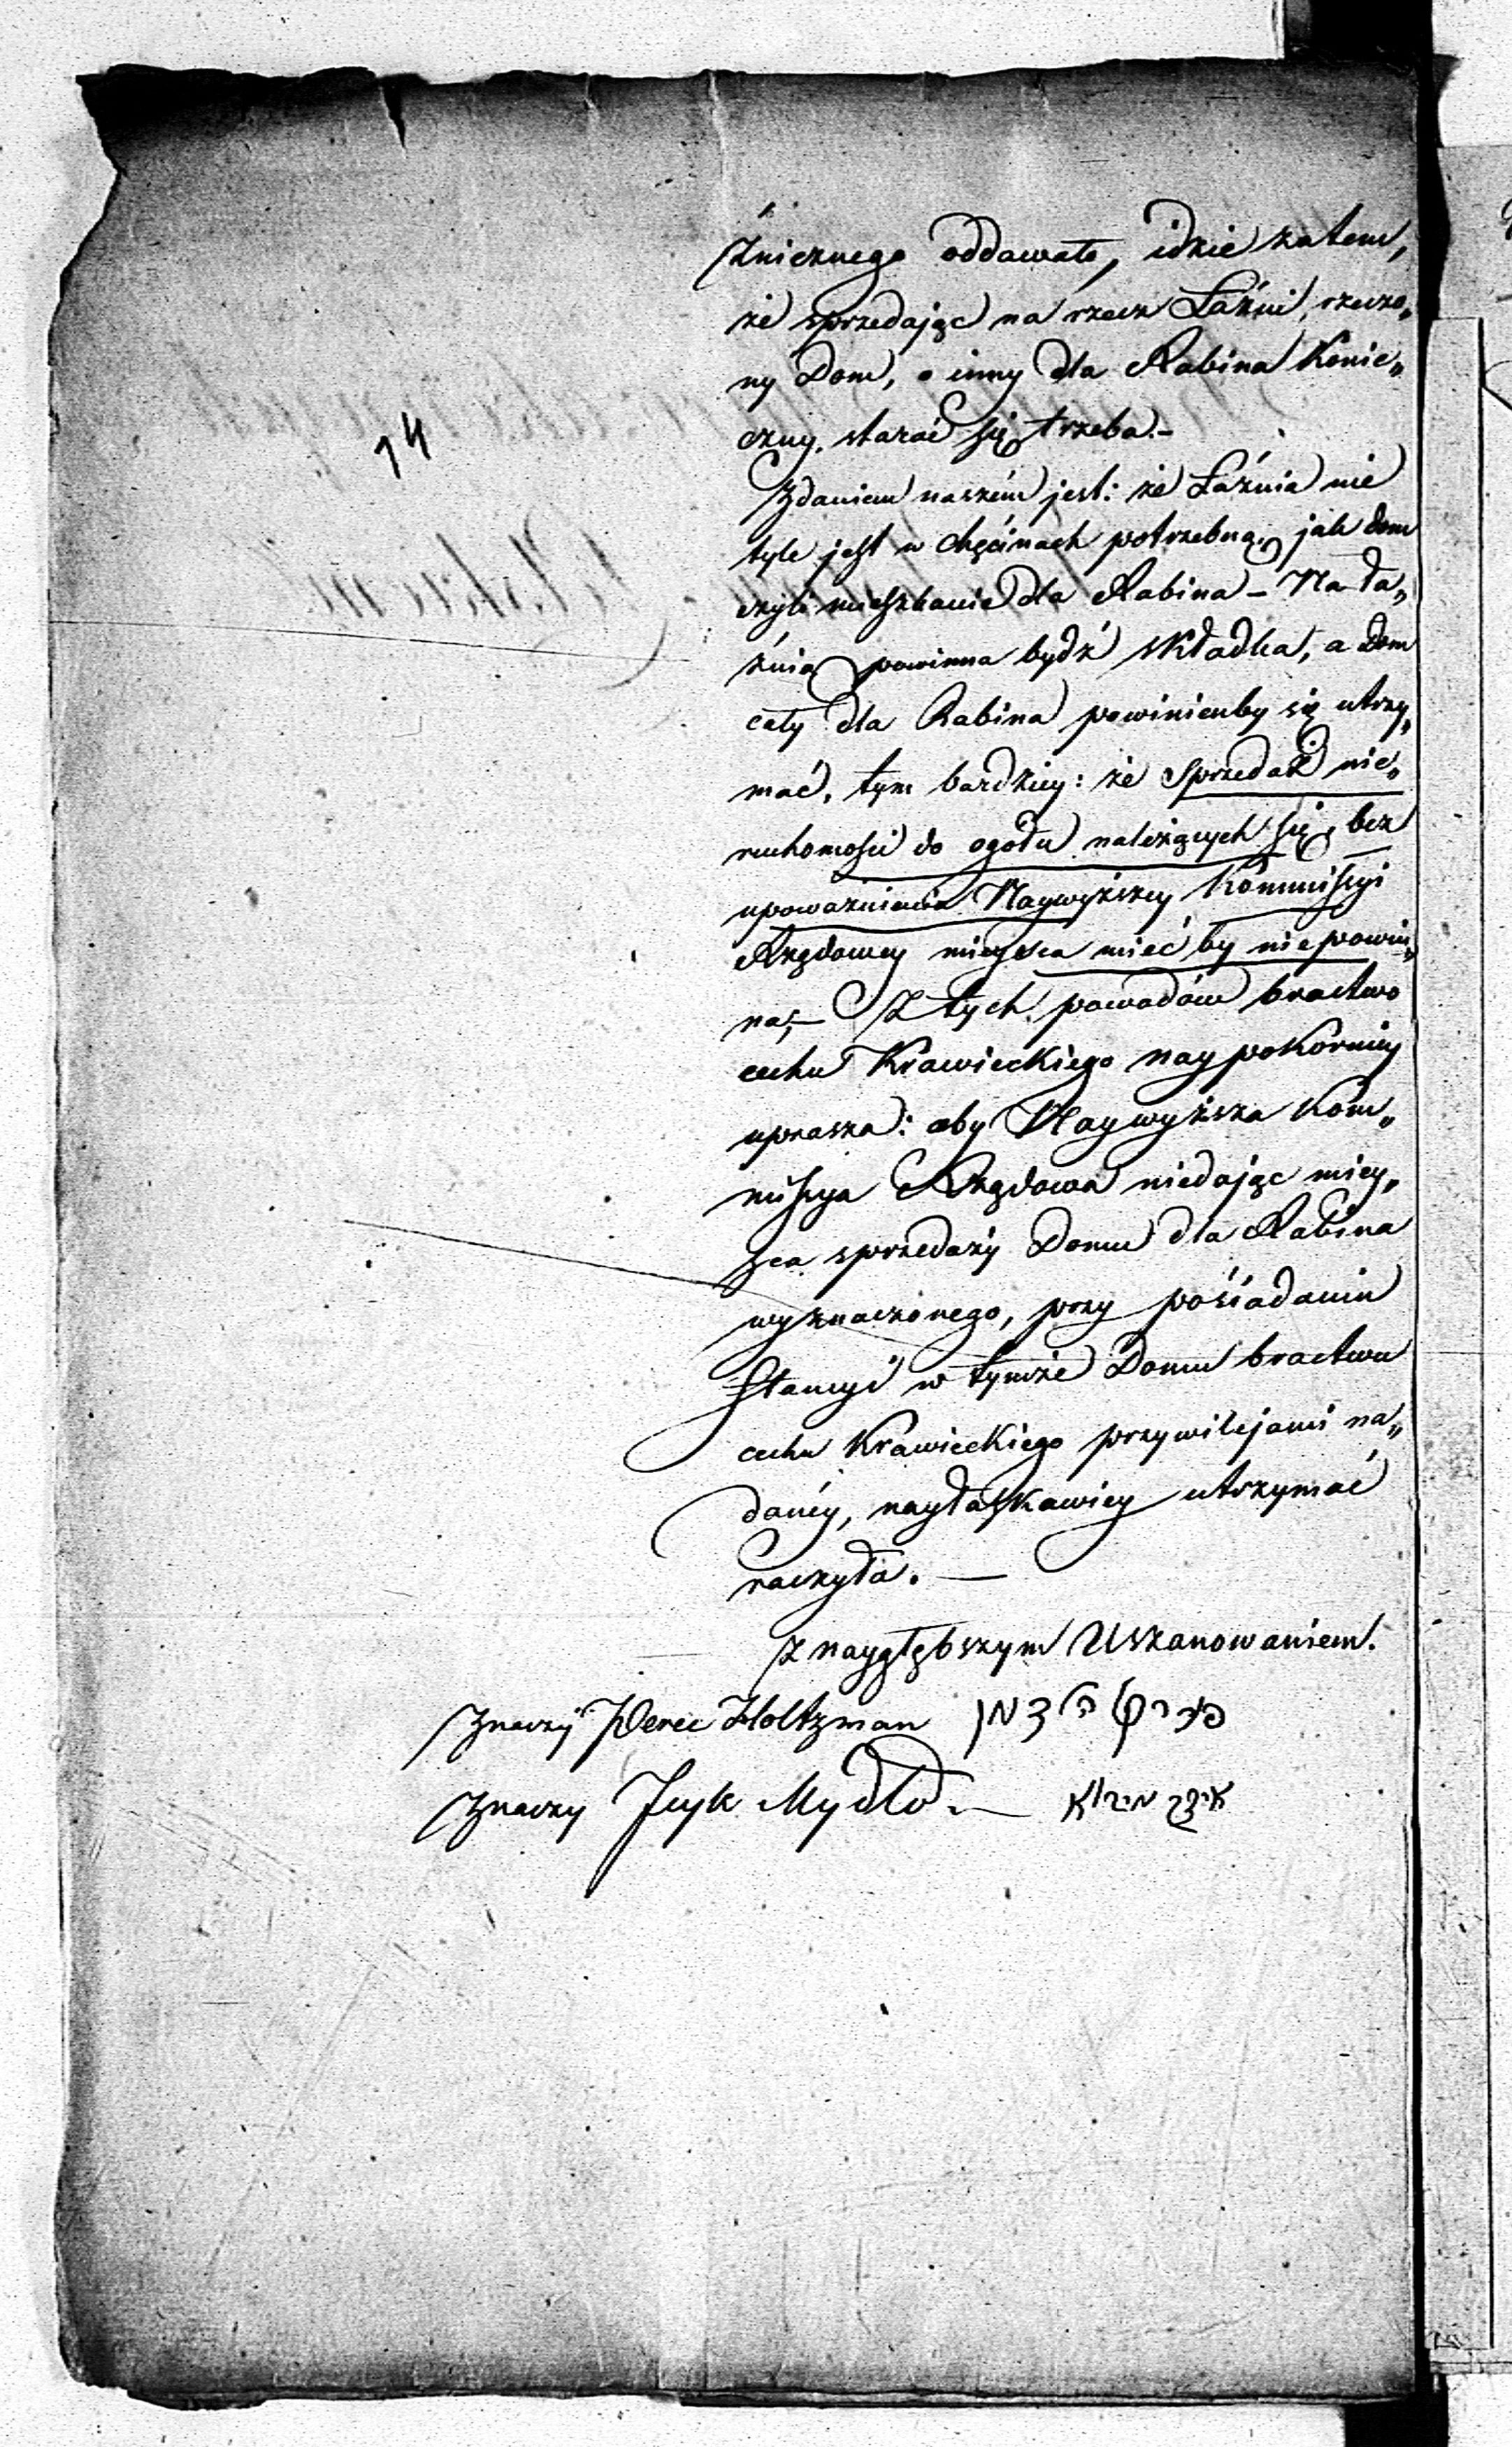 14
źnicznego oddawało, idzie zatem,
że sprzedając na rzecz Łaźni, rzeczo„
ny Dom, o inny dla Rabina Konie„
czny, starać się trzeba.—
Zdaniem naszém jest: że Łaźnia nie
tyle jest w Chęcinach potrzebną, jak dom
czyli mieszkanie dla Rabina — Na Ła„
źnią powinna bydź składka, a Dom
cały dla Rabina powinienby się utrzy„
mać, tym bardziey: że Sprzedaż nie„
ruchomości do ogółu należących się, bez
upoważnienia Naywyższey Kommissyi
Rządowey mieysca mieć by niepowin„
na;— Z tych powodów bractwo
cechu Krawieckiego naypokorniey
uprasza: aby Naywyższa Kom„
missya Rządowa niedając miey„
sca sprzedaży Domu dla Rabina
wyznaczonego, przy posiadaniu
Stancyi w tymże Domu bractwu
cechu Krawieckiego przywilejami na„
daney, nayłaskawiey utrzymać
raczyła. —
Z naygłębszym Uszanowaniem.
Znaczy Perec Holtzman פירץ הלצמן
Znaczy Jcyk Mydło — איצק מידלא